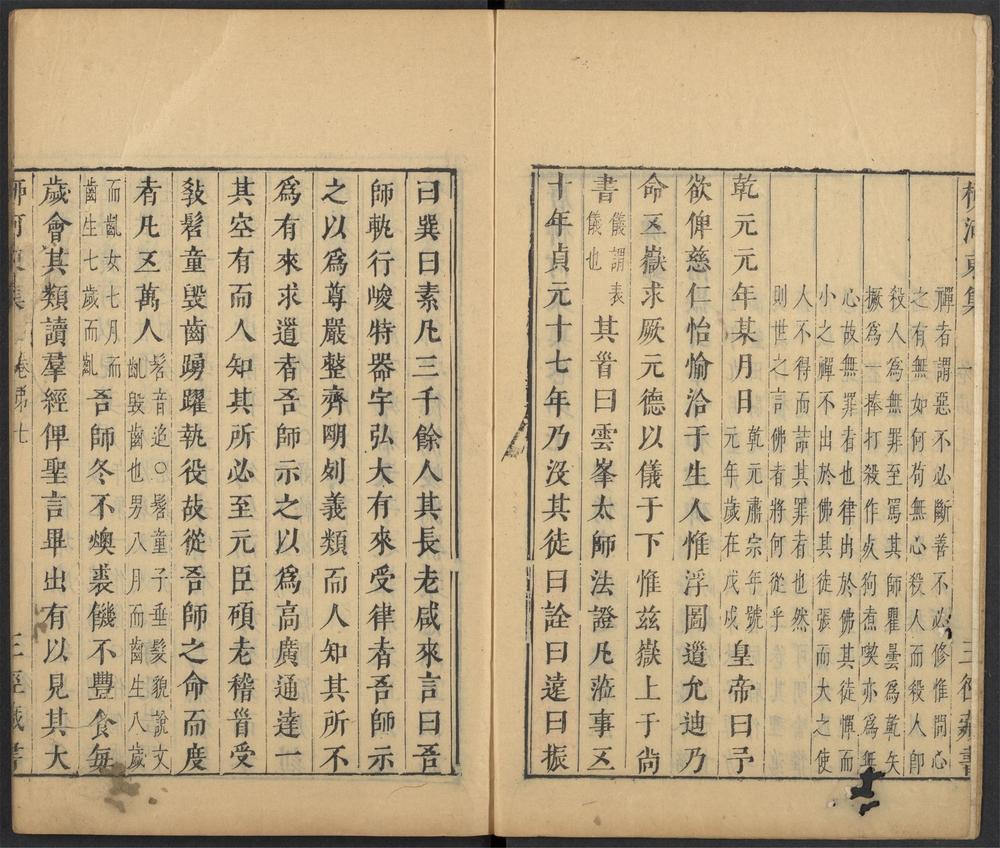 柳河東集 三徑藏書
禪者謂惡不必斷善不必修惟問心
之有無如何苟無心殺人而殺人卽
殺人為無罪至罵其師瞿曇為乾矢
橛為一棒打殺作㱠狗煮喫亦為無
心故無罪者也律出於佛其徒憚而
小之禪不出於佛其徒張而大之使
人不得而詰其罪者也然
則世之言佛者將何從乎
乾元元年某月日乾元肅宗年號元年歲在戊戌皇帝曰予
欲俾慈仁怡愉洽于生人惟浮圖道允迪乃
命五嶽求厥元德以儀于下惟茲嶽上于尚
書儀謂表儀也其首曰雲峯太師法證凡涖事五
十年貞元十七年乃沒其徒曰詮曰遠曰振
曰巽曰素凡三千餘人其長老咸來言曰吾
師軌行峻特器宇弘大有來受律者吾師示
之以為尊嚴整齊明列義類而人知其所不
為有來求道者吾師示之以為高廣通達一
其空有而人知其所必至元臣碩老稽首受
敎髫童毀齒踴躍執役故從吾師之命而度
者凡五萬人髫音迢○髫童子垂髮貌說文齔毀齒也男八月而齒生八歲
而齔女七月而齒生七歲而齔吾師冬不燠裘饑不豐食每
歲會其類讀羣經俾聖言畢出有以見其大
柳河東集 卷第七 三徑藏書